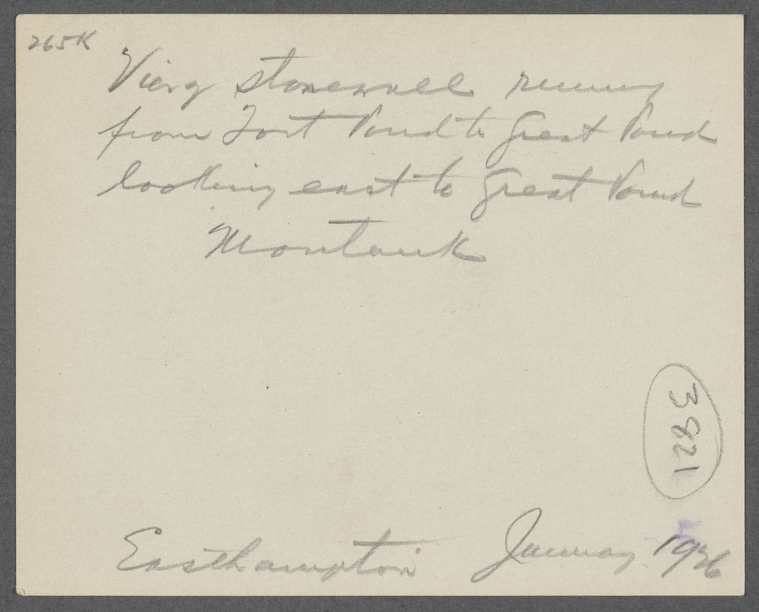 265K
View of stonewall running
from Fort Pond to Great Pond
looking east to Great Pond
Montauk
3821
Easthampton January 1926